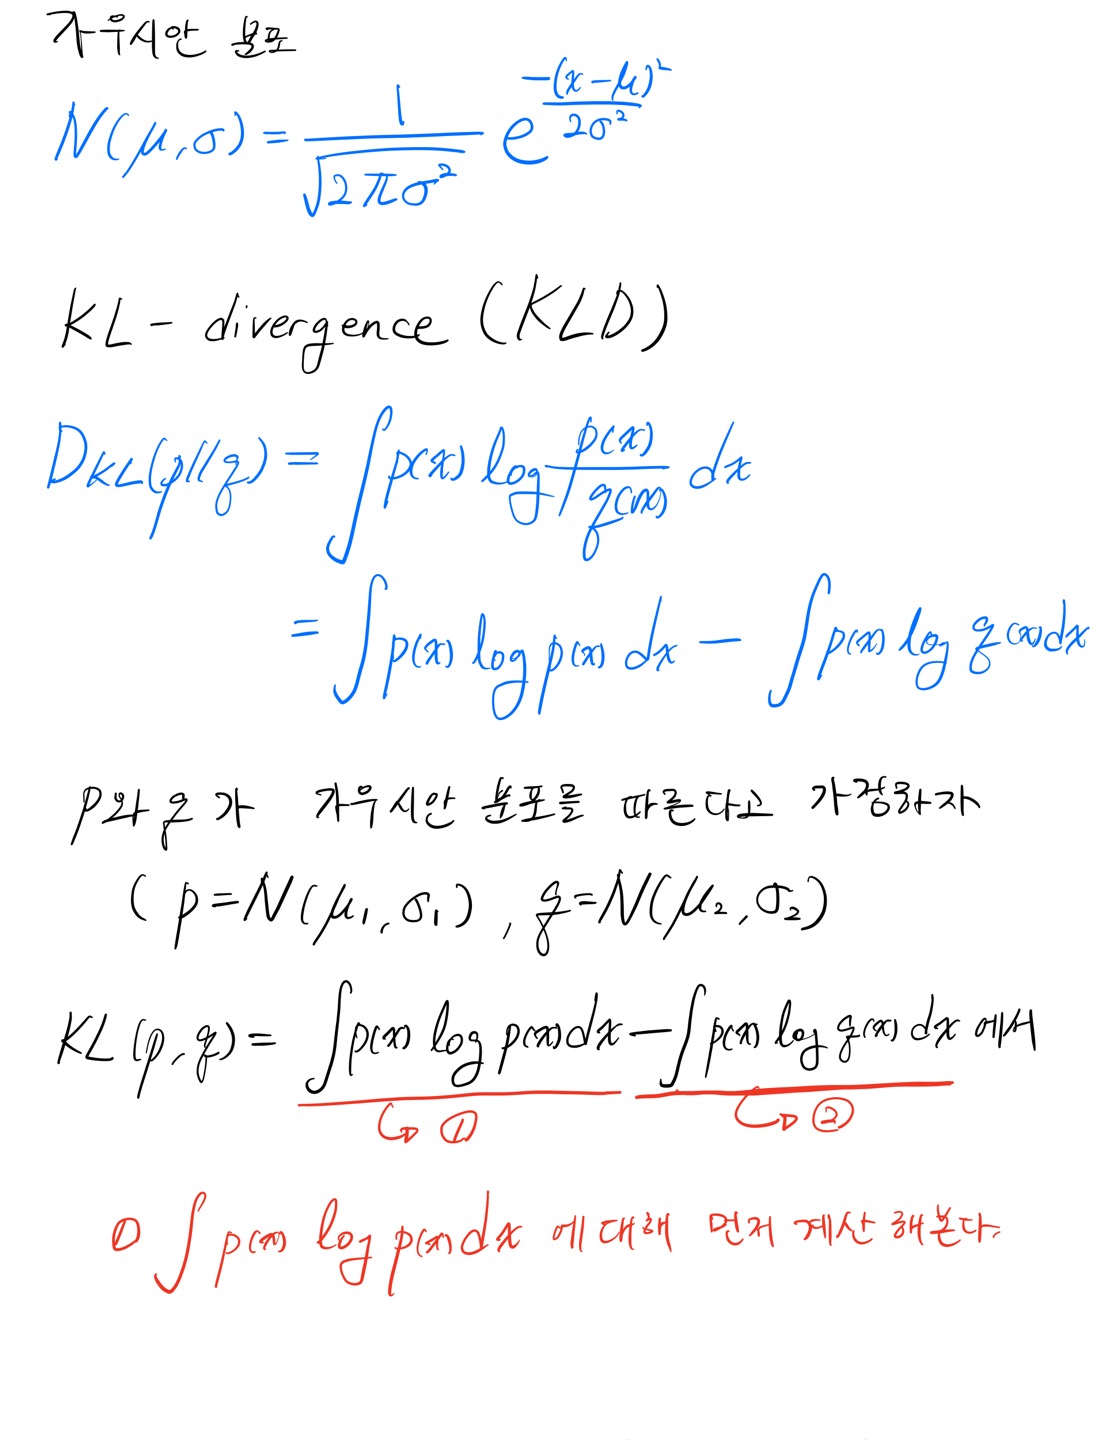 가우시안 분포
N(μ,σ) = 1/√(2πσ²) e^(-(x-μ)²/2σ²)
KL-divergence (KLD)
D_KL(p||q) = ∫p(x) log p(x)/q(x) dx
= ∫p(x) log p(x) dx - ∫p(x) log q(x)dx
p와 q가 가우시안 분포를 따른다고 가정하자
( p=N(μ₁,σ₁) , q=N(μ₂,σ₂)
KL(p,q) = ∫p(x) log p(x)dx - ∫p(x) log q(x) dx 에서
↳ ① ↳ ②
① ∫p(x) log p(x)dx 에 대해 먼저 계산 해본다.